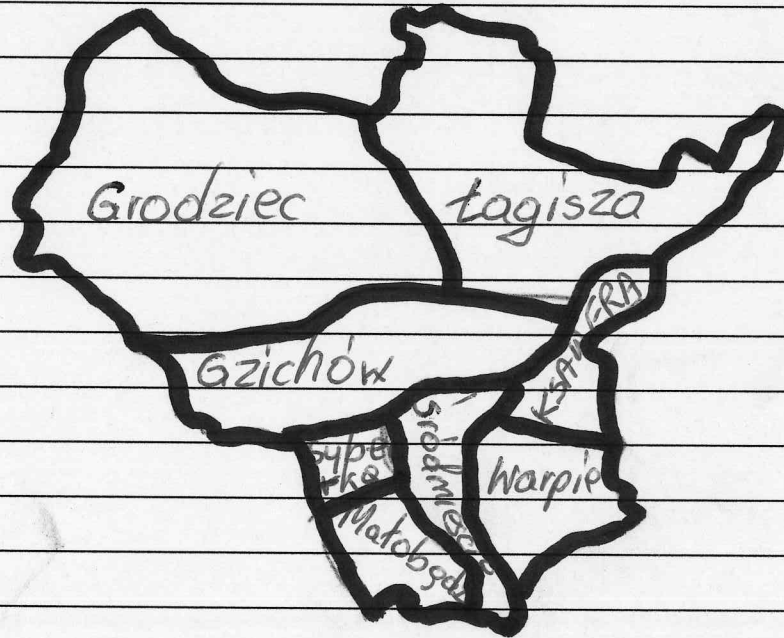 Grodziec
Łagisza
KSAWERA
Gzichów
Śródmieście
Warpie
Małobądz